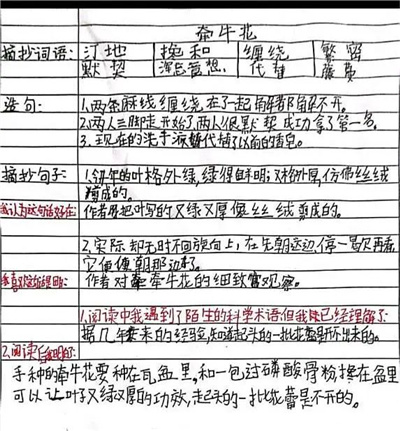 牵牛花
摘抄词语: 汀地 搀和 缠绕 繁密
默契 浑忘 代替 藤蔓
造句: 1.两条麻线缠绕在了一起 解都解不开。
2.两人三脚走开始了,两人很默契 成功拿了第一名。
3.现在的洗手液 代替了以前的香皂。
摘抄句子: 1.今年的叶格外绿,绿得鲜明;又格外厚,仿佛丝绒
剪成的。
我认为这句话好在: 作者 把叶写的又绿又厚像丝绒剪成的。
2.实际却无时不回旋向上,在先朝这边,停一会儿再看
它便 朝那边了。
我喜欢这句理由: 作者对牵牛花的细致 观察。
1.阅读中我遇到了陌生的科学术语但我已经理解了:
据几年来的经验,知道起头的一批花蕾 开不出来的。
2.阅读
手种的牵牛花要种在瓦盆里,和一包过磷酸骨粉搀在盆里
可以让叶子又绿又厚的功放,起头的一批花蕾是不开的。